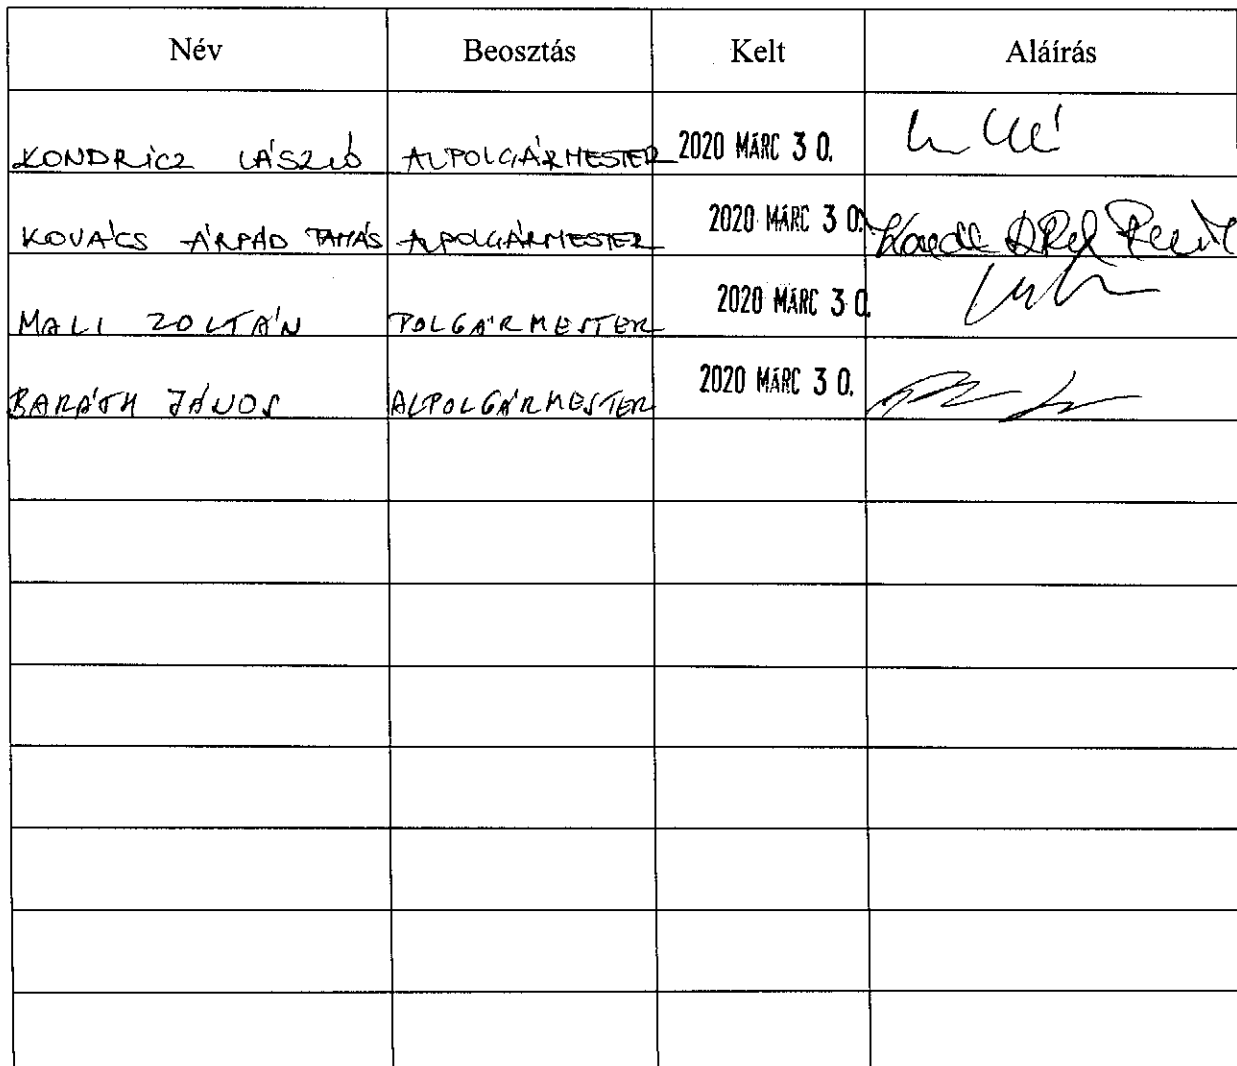 Név Beosztás Kelt Aláírás
KONDRICZ LÁSZLÓ ALPOLGÁRMESTER 2020 MÁRC 30.
KOVÁCS ÁRPÁD TAMÁS ALPOLGÁRMESTER 2020 MÁRC 30.
MALI ZOLTÁN POLGÁRMESTER 2020 MÁRC 30.
BARÁTH JÁNOS ALPOLGÁRMESTER 2020 MÁRC 30.